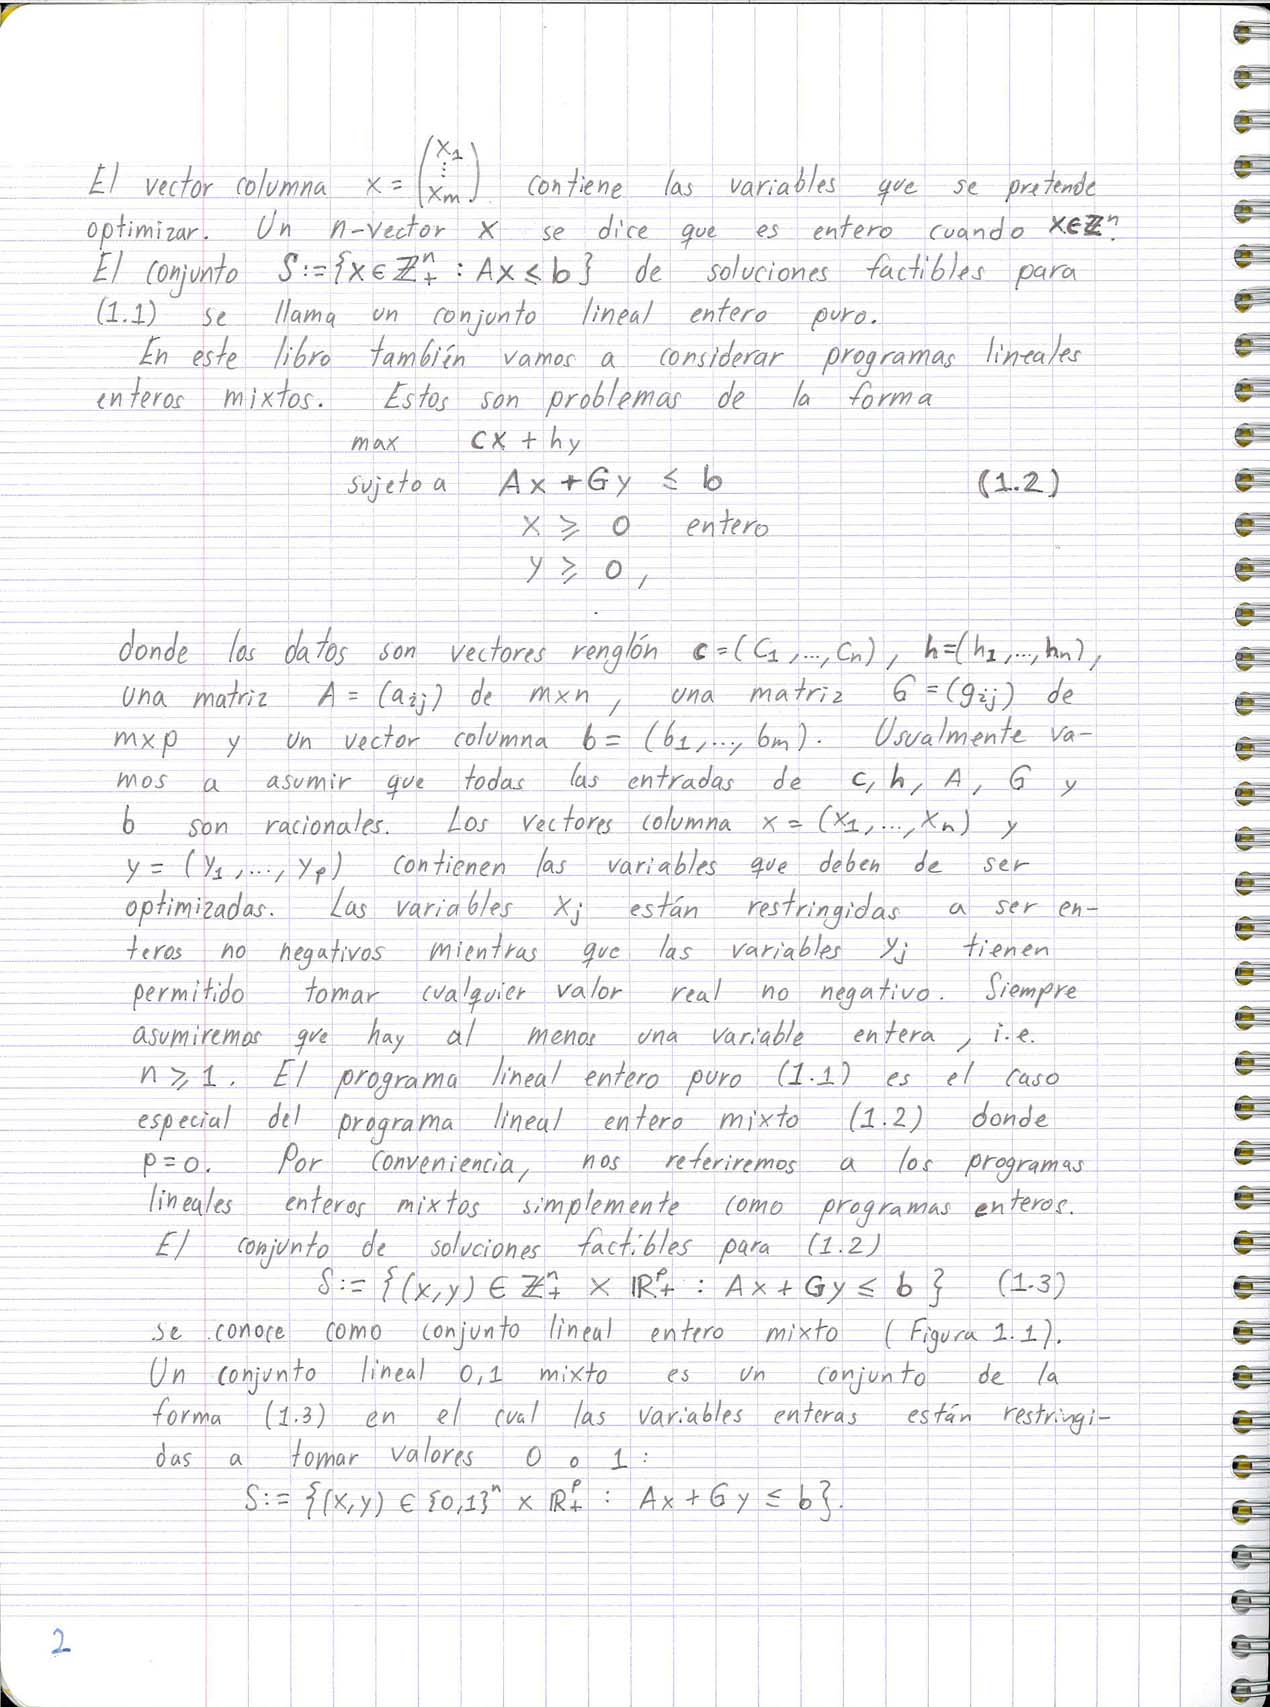 El vector columna x = (x1 ⋮ xm) contiene las variables que se pretende
optimizar. Un n-vector x se dice que es entero cuando x∈ℤⁿ.
El conjunto S:={x∈ℤ₊ⁿ : Ax ≤ b} de soluciones factibles para
(1.1) se llama un conjunto lineal entero puro.
En este libro también vamos a considerar programas lineales
enteros mixtos. Estos son problemas de la forma
max cx + hy
sujeto a Ax + Gy ≤ b (1.2)
x ⩾ 0 entero
y ⩾ 0,
donde los datos son vectores renglón c=(c1,...,cn), h=(h1,...,hn),
una matriz A = (aij) de m×n, una matriz G=(gij) de
m×p y un vector columna b= (b1,..., bm). Usualmente va-
mos a asumir que todas las entradas de c, h, A, G y
b son racionales. Los vectores columna x = (x1,..., xn) y
y = (y1,..., yp) contienen las variables que deben de ser
optimizadas. Las variables xj están restringidas a ser en-
teros no negativos mientras que las variables yj tienen
permitido tomar cualquier valor real no negativo. Siempre
asumiremos que hay al menos una variable entera, i.e.
n ⩾ 1. El programa lineal entero puro (1.1) es el caso
especial del programa lineal entero mixto (1.2) donde
p=0. Por conveniencia, nos referiremos a los programas
lineales enteros mixtos simplemente como programas enteros.
El conjunto de soluciones factibles para (1.2)
S:= {(x,y) ∈ ℤ₊ⁿ × ℝ₊ᵖ : Ax + Gy ≤ b} (1.3)
se conoce como conjunto lineal entero mixto (Figura 1.1).
Un conjunto lineal 0,1 mixto es un conjunto de la
forma (1.3) en el cual las variables enteras están restringi-
das a tomar valores 0 o 1:
S:= {(x,y) ∈ {0,1}ⁿ × ℝ₊ᵖ : Ax + Gy ≤ b}.
2